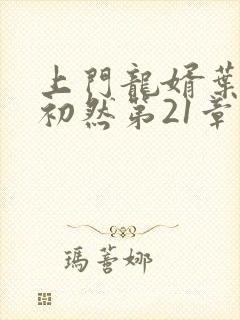 上門龍婿葉
初然第21章
瑪蒈娜